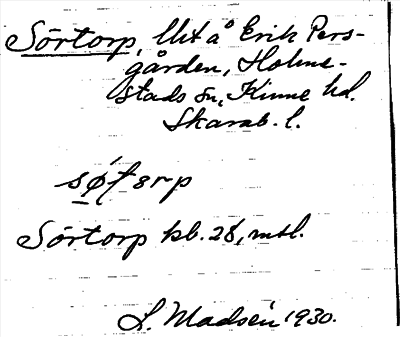 Sörtorp, Utå Erik Pers-
gården, Holme-
stads sn, Kinne hd.
Skarab. l.
søţərp
Sörtorp kb. 28, mtl.
L. Madsén 1930.